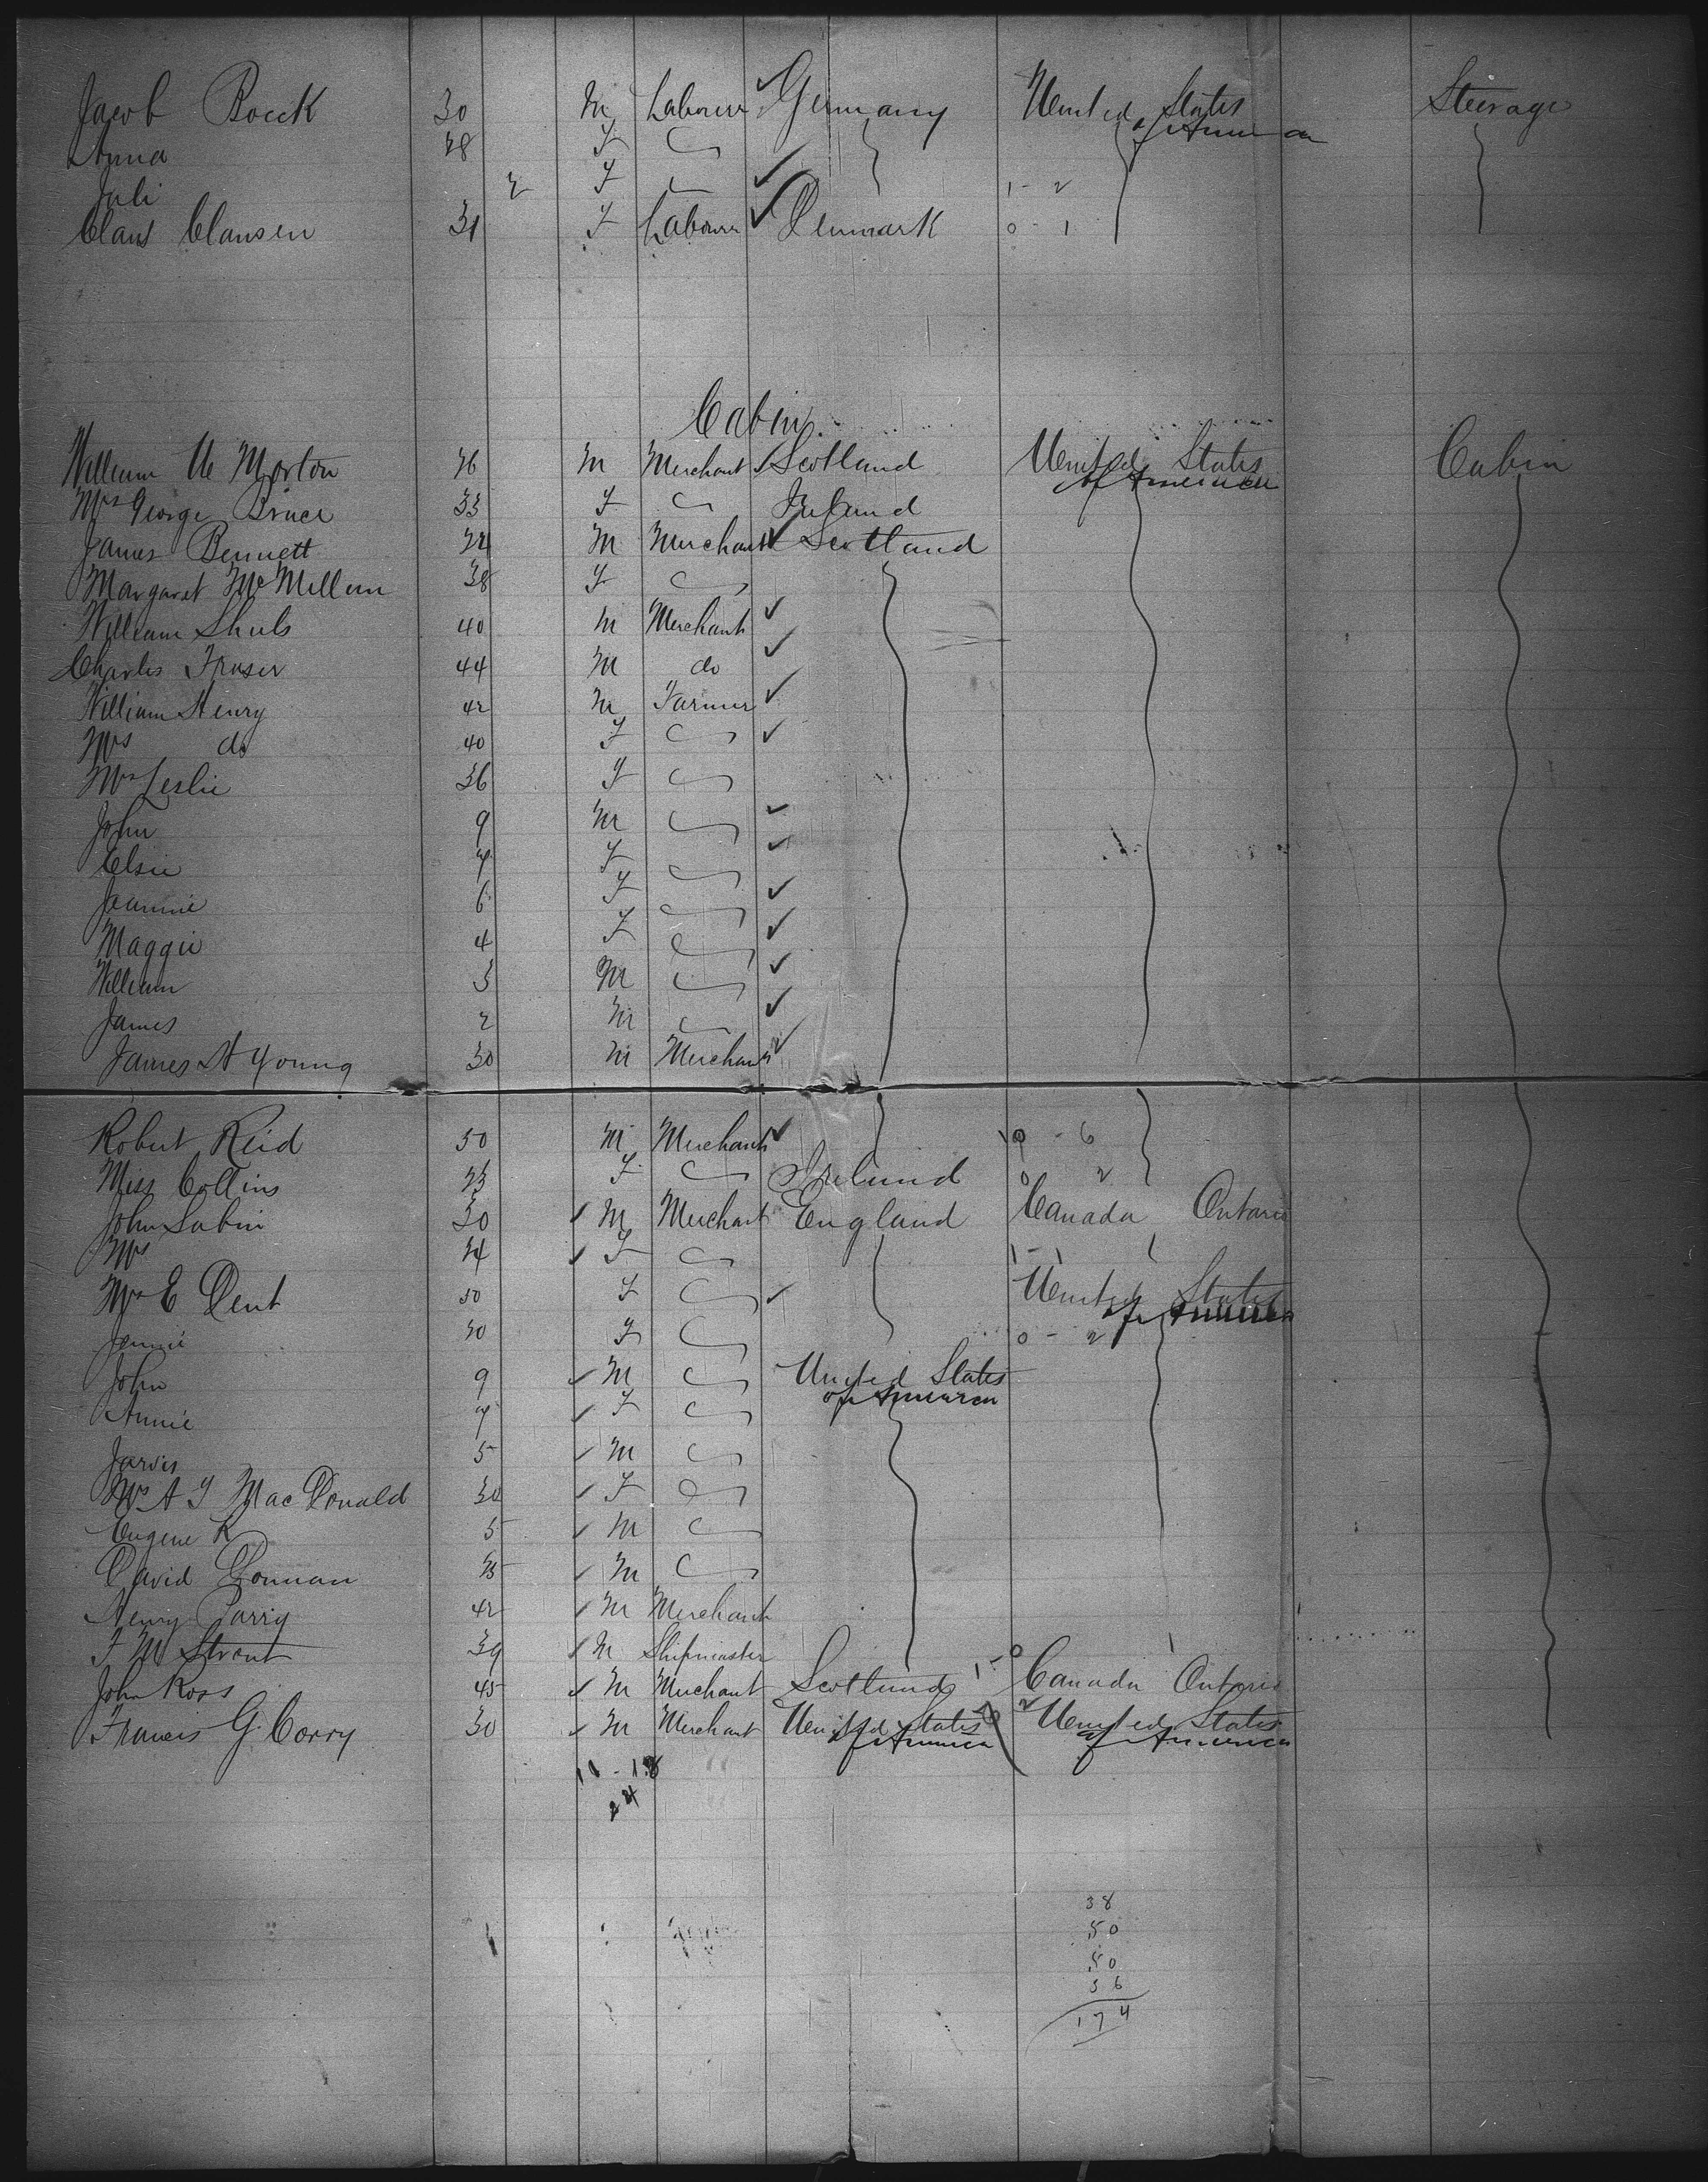 Jacob Boeck 30 M Labourer Germany United States of America Steerage
Anna 28 F
Juli 2 F 1 - 2
Claus Clausen 31 F Labourer Denmark 0 - 1
Cabin
William Morton 26 M Merchant Scotland United States of America Cabin
Mrs George Bruce 33 F Ireland
James Bennett M Merchant Scotland
Margaret McMillan 38 F
William 40 M Merchant
Charles Fraser 44 M do
William Henry 42 M Farmer
Mrs do 40 F
Mrs Leslie 36 F
John 9 M
Elsie 7 F
Jeannie 6 F
Maggie 4 F
William 3 M
James 2 M
James H Young 30 M Merchant
Robert Reid 50 M Merchant 10 - 6
Miss Collins 23 F Ireland 0 2
John Sabin 30 M Merchant England Canada Ontario
Mrs 24 F 1 - 1
Mrs E Dent 50 F United States of America
Jennie 20 F 0 - 2
John 9 M United States of America
Annie 7 F
Jarvis 5 M
Mrs A J MacDonald 30 F
Eugene R 5 M
David M
Henry Parry 42 M Merchant
F M Strout 39 M Shipmaster
John Ross 45 M Merchant Scotland 1 - 0 Canada Ontario
Francis G. Corry 30 M Merchant United States of America 2 United States of America
11 - 13
24
38
50
50
36
174